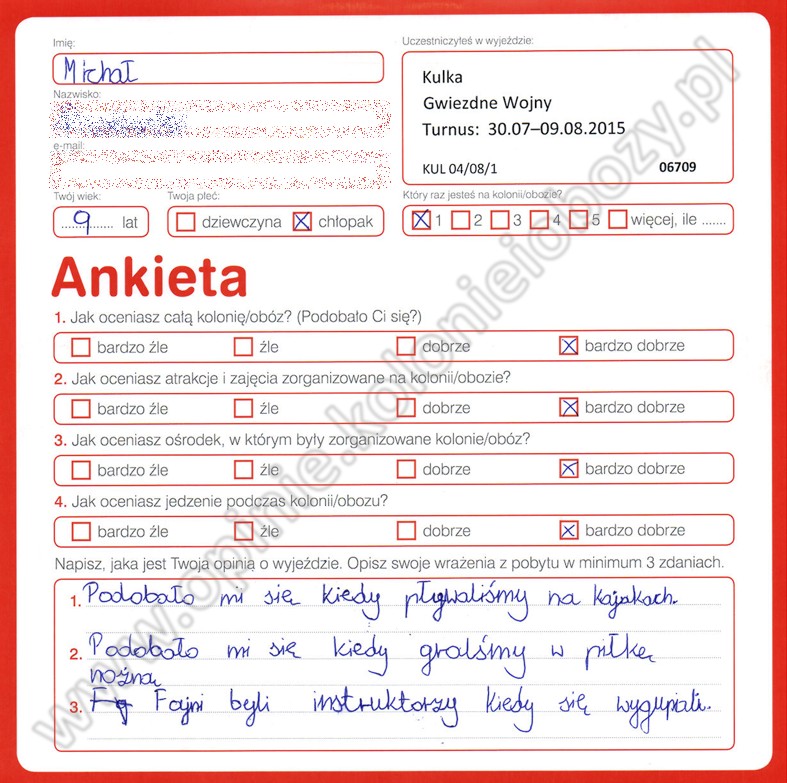 Imię:
Michał
Nazwisko:
e-mail:
Twój wiek:
9 lat
Twoja płeć:
dziewczyna chłopak
Uczestniczyłeś w wyjeździe:
Kulka
Gwiezdne Wojny
Turnus: 30.07–09.08.2015
KUL 04/08/1 06709
Który raz jesteś na kolonii/obozie?
1 2 3 4 5 więcej, ile .......
Ankieta
1. Jak oceniasz całą kolonię/obóz? (Podobało Ci się?)
bardzo źle źle dobrze bardzo dobrze
2. Jak oceniasz atrakcje i zajęcia zorganizowane na kolonii/obozie?
bardzo źle źle dobrze bardzo dobrze
3. Jak oceniasz ośrodek, w którym były zorganizowane kolonie/obóz?
bardzo źle źle dobrze bardzo dobrze
4. Jak oceniasz jedzenie podczas kolonii/obozu?
bardzo źle źle dobrze bardzo dobrze
Napisz, jaka jest Twoja opinia o wyjeździe. Opisz swoje wrażenia z pobytu w minimum 3 zdaniach.
1. Podobało mi się kiedy pływaliśmy na kajakach.
2. Podobało mi się kiedy graliśmy w piłkę
nożną
3. Fajni byli instruktorzy kiedy się wygupiali.
www.opinie.kolonieiobozy.pl